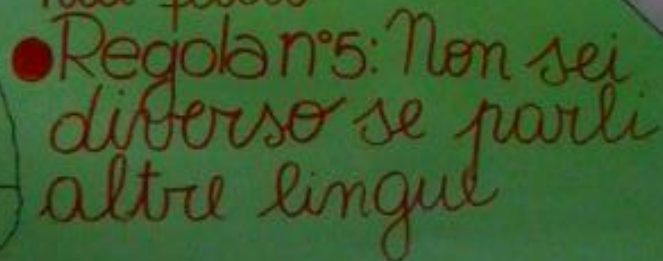 Regola n°5: Non sei
diverso se parli
altre lingue